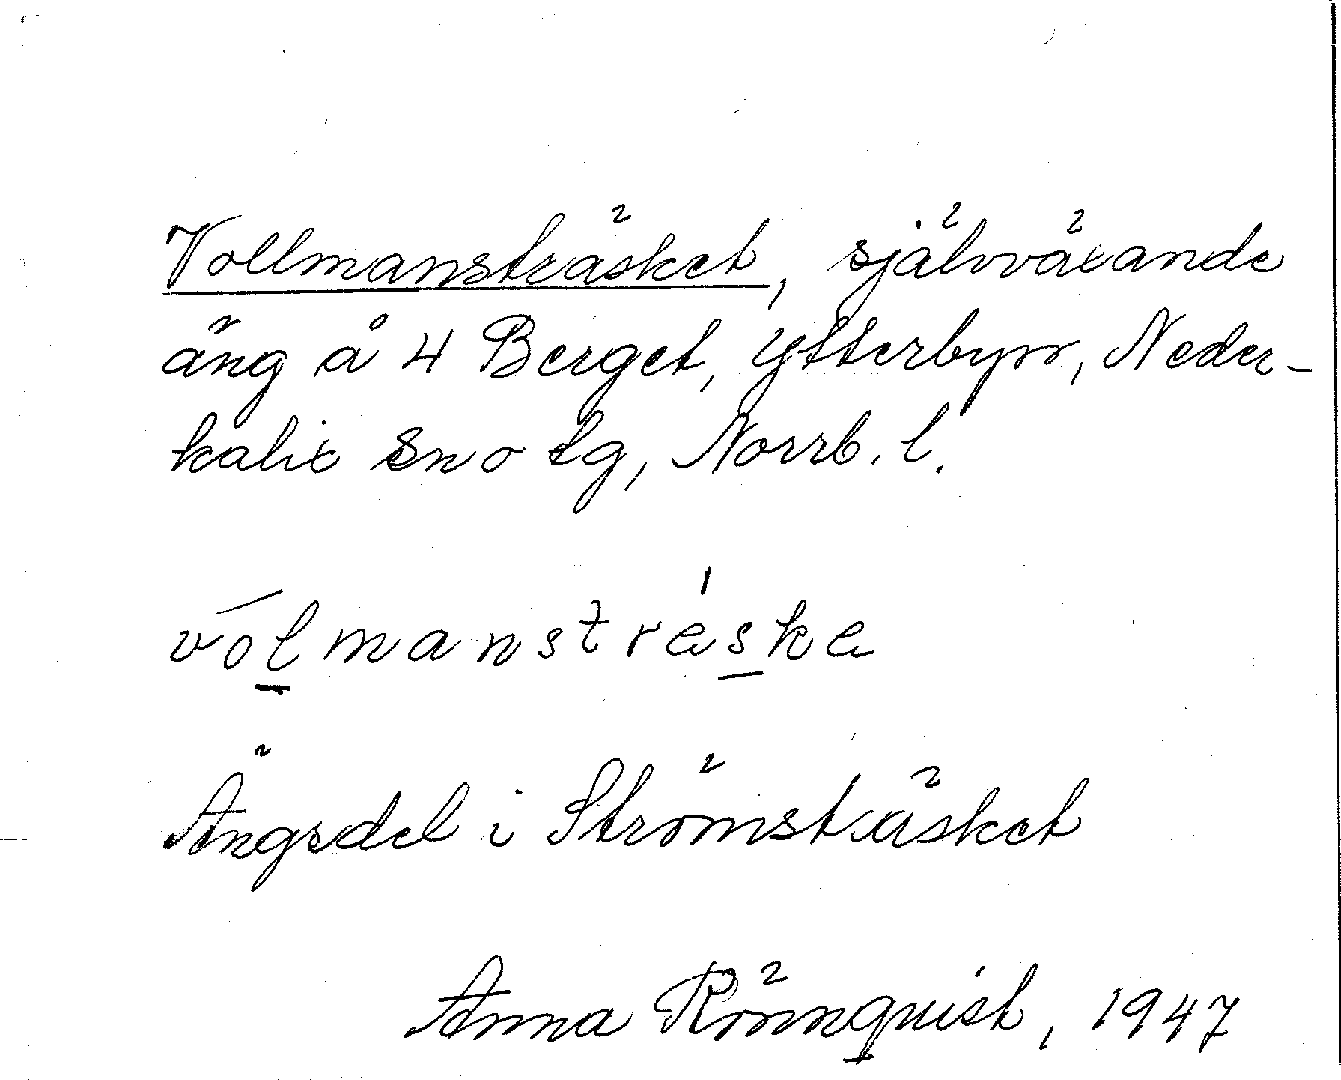 Vollmansträsket, självväxande
äng å 4 Berget, Ytterbyn, Neder-
kalix sn o tg, Norrb. l.
vólmanstréska
Ängsdel i Strömsträsket
Anna Rönnquist, 1947